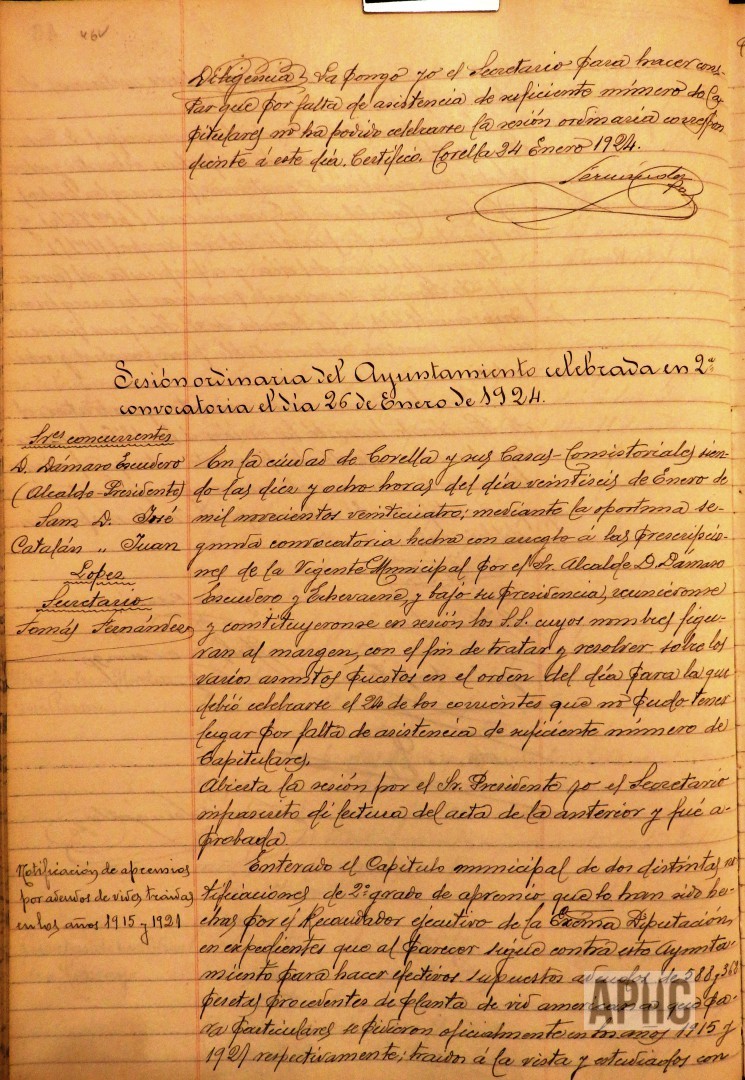 46v
Diligencia, La pongo yo el Secretario para hacer cons-
tar que por falta de asistencia de suficiente número de Ca-
pitulares no ha podido celebrarse la sesión ordinaria correspon
diente á este día. Certifico, Corella 24 Enero 1924.
Fernandez
Sesión ordinaria del Ayuntamiento celebrada en 2ª
convocatoria el día 26 de Enero de 1924.
Sres concurrentes
D. Dámaso Escudero
(Alcalde-Presidente)
Sam D. José
Catalán „ Juan
Lopez
Secretario
Tomás Fernández
En la ciudad de Corella y sus Casas-Consistoriales sien-
do las diez y ocho horas del día veintiseis de Enero de
mil novecientos veinticuatro; mediante la oportuna se-
gunda convocatoria hecha con arreglo á las prescripcio-
nes de la Vigente Municipal por el Sr. Alcalde D. Dámaso
Escudero y Echevarne, y bajo su presidencia, reuniéronse
y constituyeronse en sesión los S.S. cuyos nombres figu-
ran al margen, con el fin de tratar y resolver sobre los
varios asuntos puestos en el orden del día para la que
debió celebrarse el 24 de los corrientes que no pudo tener
lugar por falta de asistencia de suficiente número de
Capitulares.
Abierta la sesión por el Sr. Presidente yo el Secretario
infrascrito di lectura del acta de la anterior y fué a-
probada.
Notificación de apremios
por adeudos de vides traidas
en los años 1915 y 1921
Enterado el Capitulo municipal de dos distintas no-
tificaciones de 2º grado de apremio que le han sido he-
chas por el Recaudador ejecutivo de la Excma Diputación
en expedientes que al parecer sigue contra este Ayunta-
miento para hacer efectivos supuestos adeudos de 588 y 368
pesetas procedentes de planta de vid americana que pa-
ra particulares se pidieron oficialmente en años 1915 y
1921 respectivamente; traidos á la vista y estudiados con
APHC